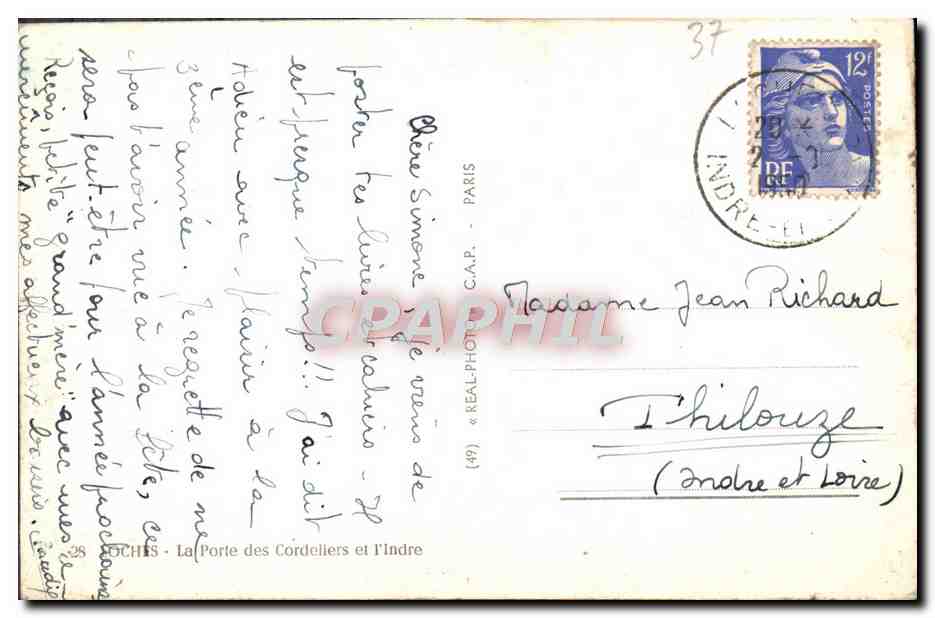 37
12F
POSTES
RF
INDRE-ET
Chère Simone, je viens de
poster tes livres et cahiers - Il
est presque temps!! J'ai dit
Adieu avec plaisir à la
3ème année. Je regrette de ne
pas t'avoir vue à la fête, ce
sera peut-être pour l'année prochaine
Reçois, petite "grand'mère" avec mes
mes affectueux baisers.
(49) « REAL-PHOTO » C.A.P. - PARIS
CPAPHIL
Madame Jean Richard
Thilouze
(Indre et Loire)
28 LOCHES - La Porte des Cordeliers et l'Indre